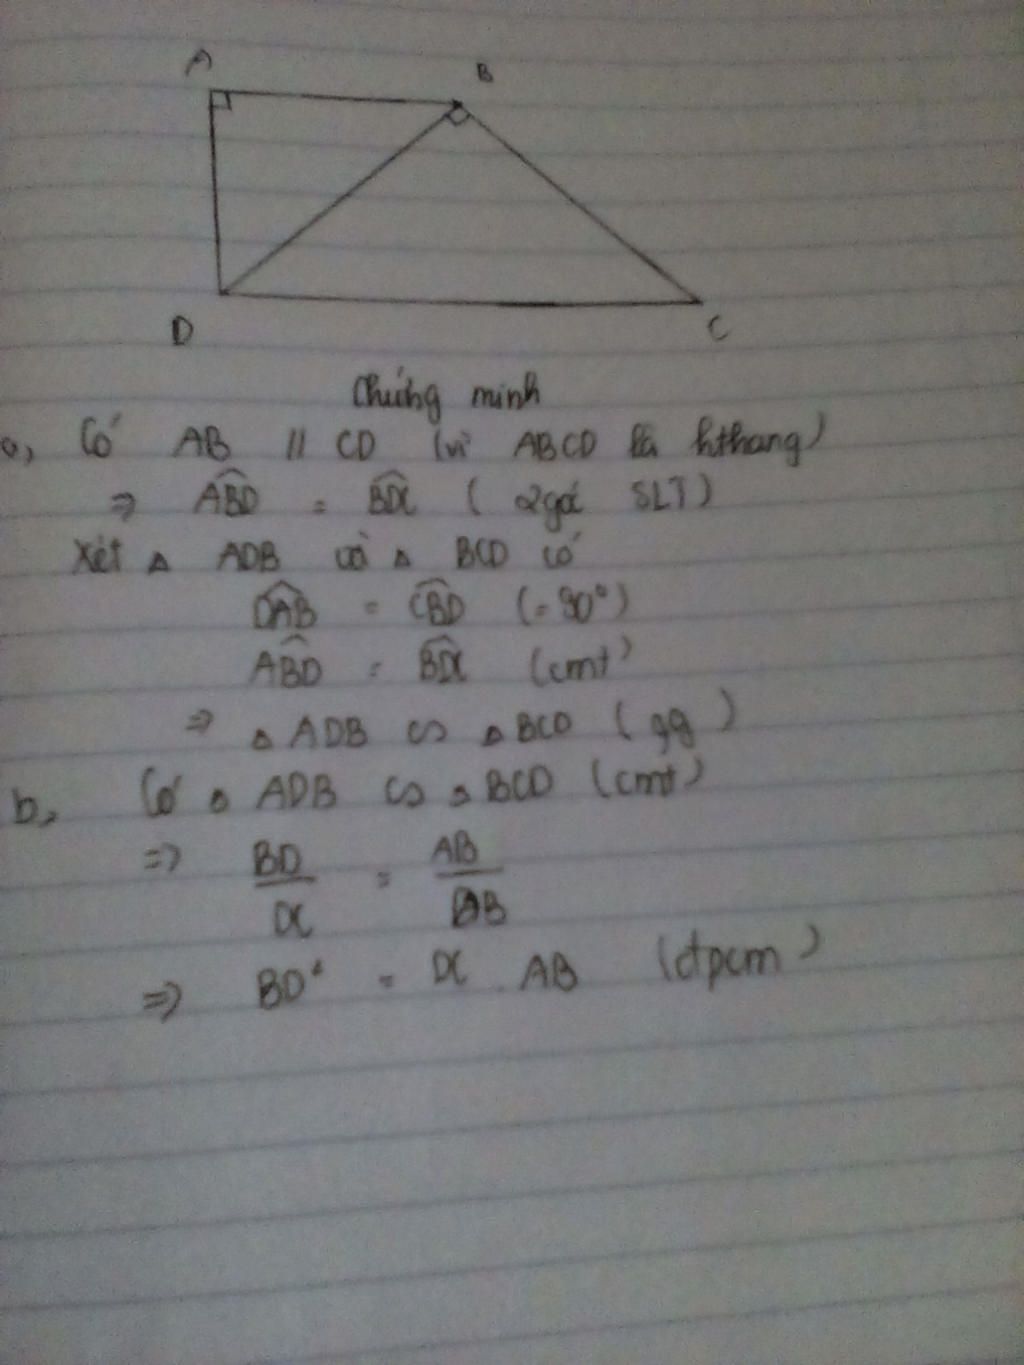 A B
D C
Chứng minh
a, Có AB // CD (vì ABCD là hthang)
=> ABD = BDC (2 góc SLT)
Xét △ ADB và △ BCD có
DAB = CBD (= 90°)
ABD = BDC (cmt)
=> △ ADB ∽ △ BCD (gg)
b, Có △ ADB ∽ △ BCD (cmt)
=> BD/DC = AB/DB
=> BD² = DC . AB (đpcm)